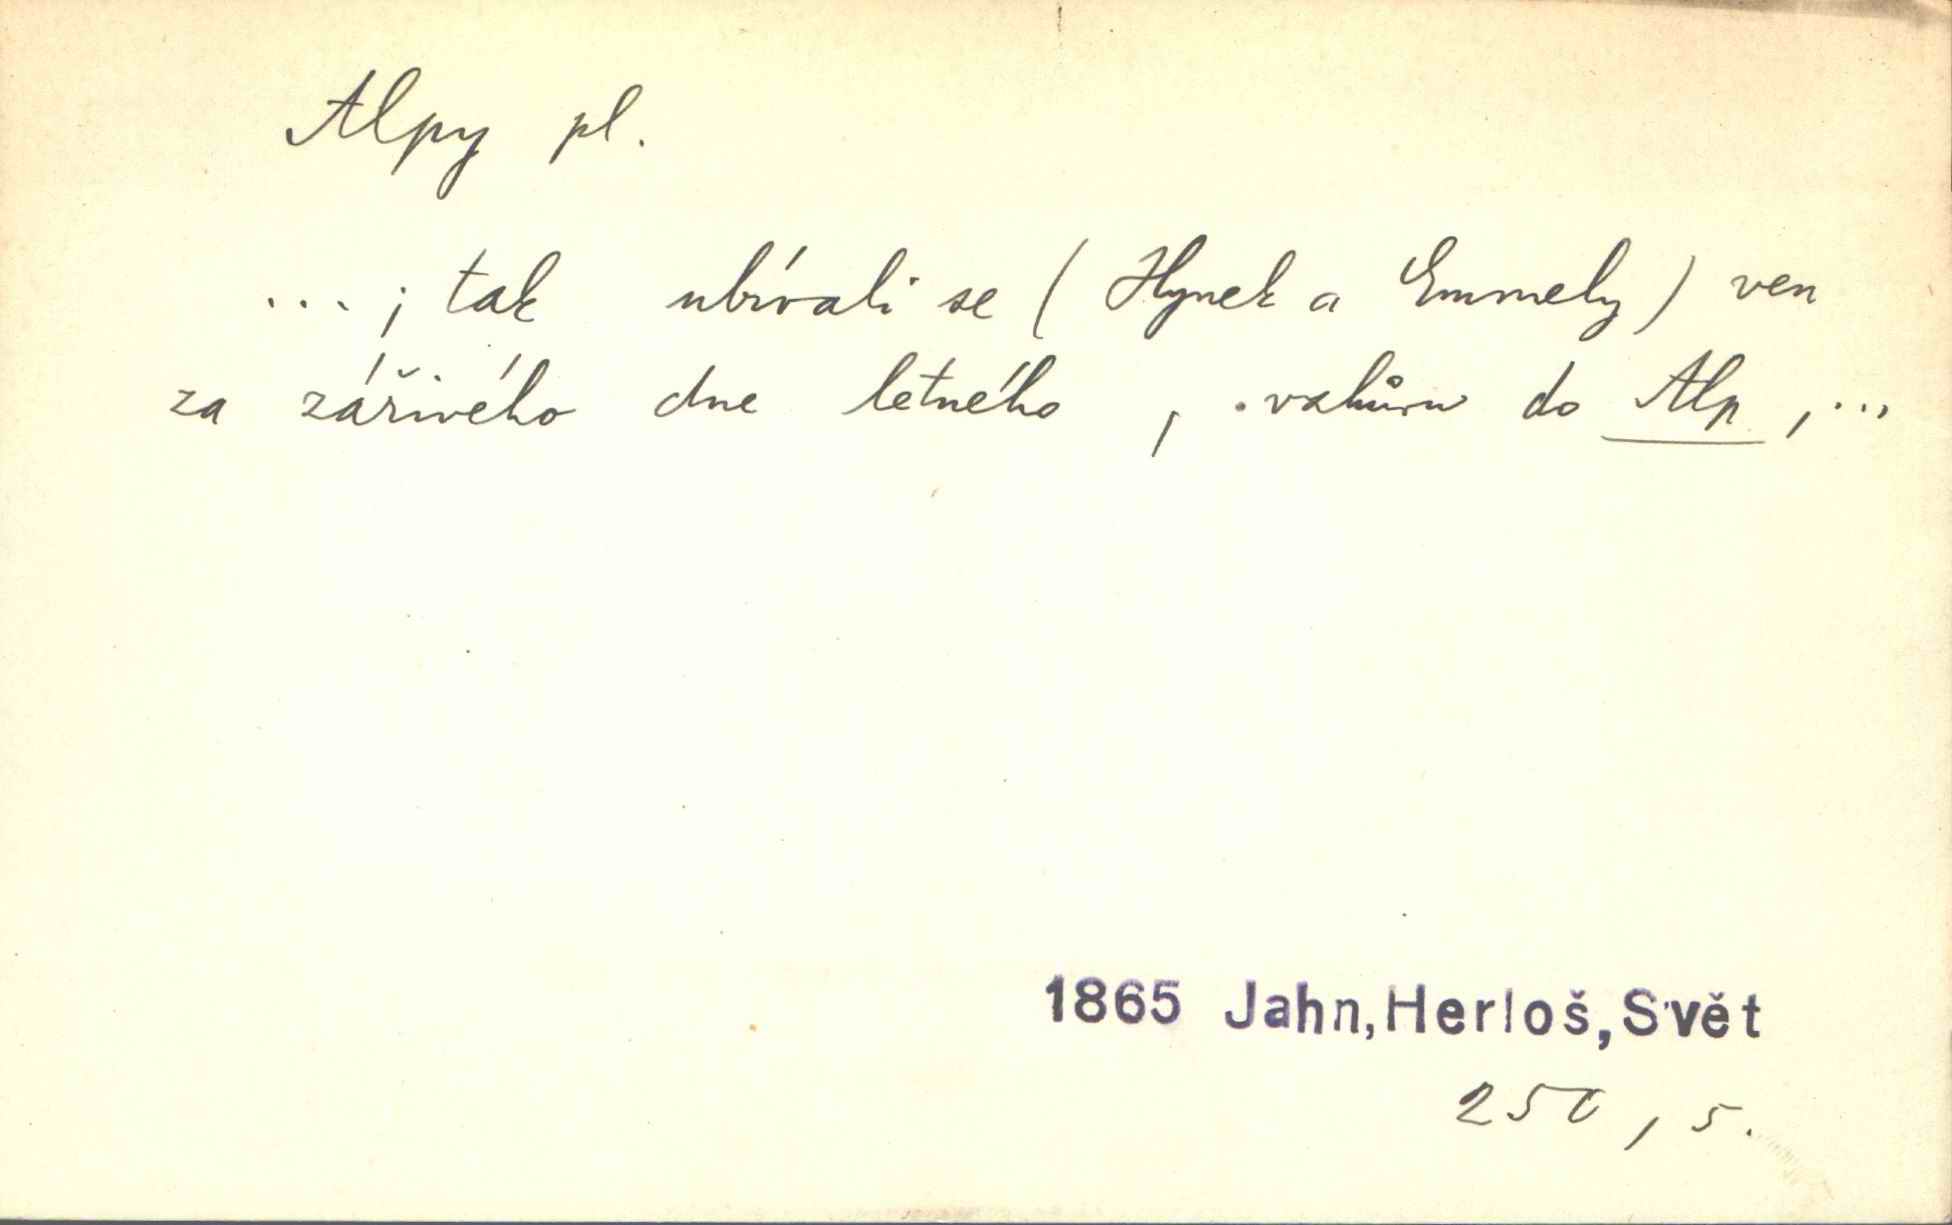 Alpy pl.
... ; tak ubírali se ( Hynek a Emmely ) ven
za zářivého dne letného , vzhůru do Alp , ...
1865 Jahn, Herloš, Svět
250 , 5.